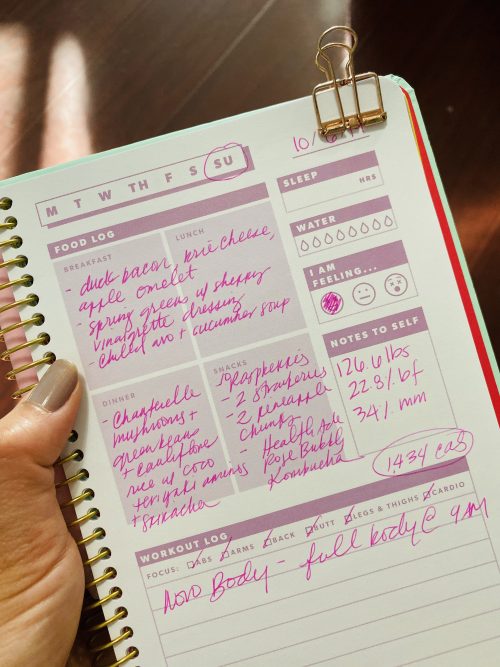 10/
M T W TH F S SU
SLEEP
HRS
WATER
I AM
FEELING...
FOOD LOG
BREAKFAST
LUNCH
- duck bacon, brie cheese,
apple omelet
- spring greens w/ sherry
vinaigrette dressing
- chilled avo + cucumber soup
DINNER
- Chanterelle
mushrooms +
green beans
+ cauliflower
rice w/ coco
teriyaki aminos
+ sriracha
SNACKS
- 10 Raspberries
- 2 strawberries
- 2 pineapple
chunks
- Health Ade
Rose Bubbly
Kombucha
NOTES TO SELF
126.6 lbs
22.8% bf
34% mm
1434 cal
WORKOUT LOG
FOCUS: ABS ARMS BACK BUTT LEGS & THIGHS CARDIO
Body - full body @ 9AM